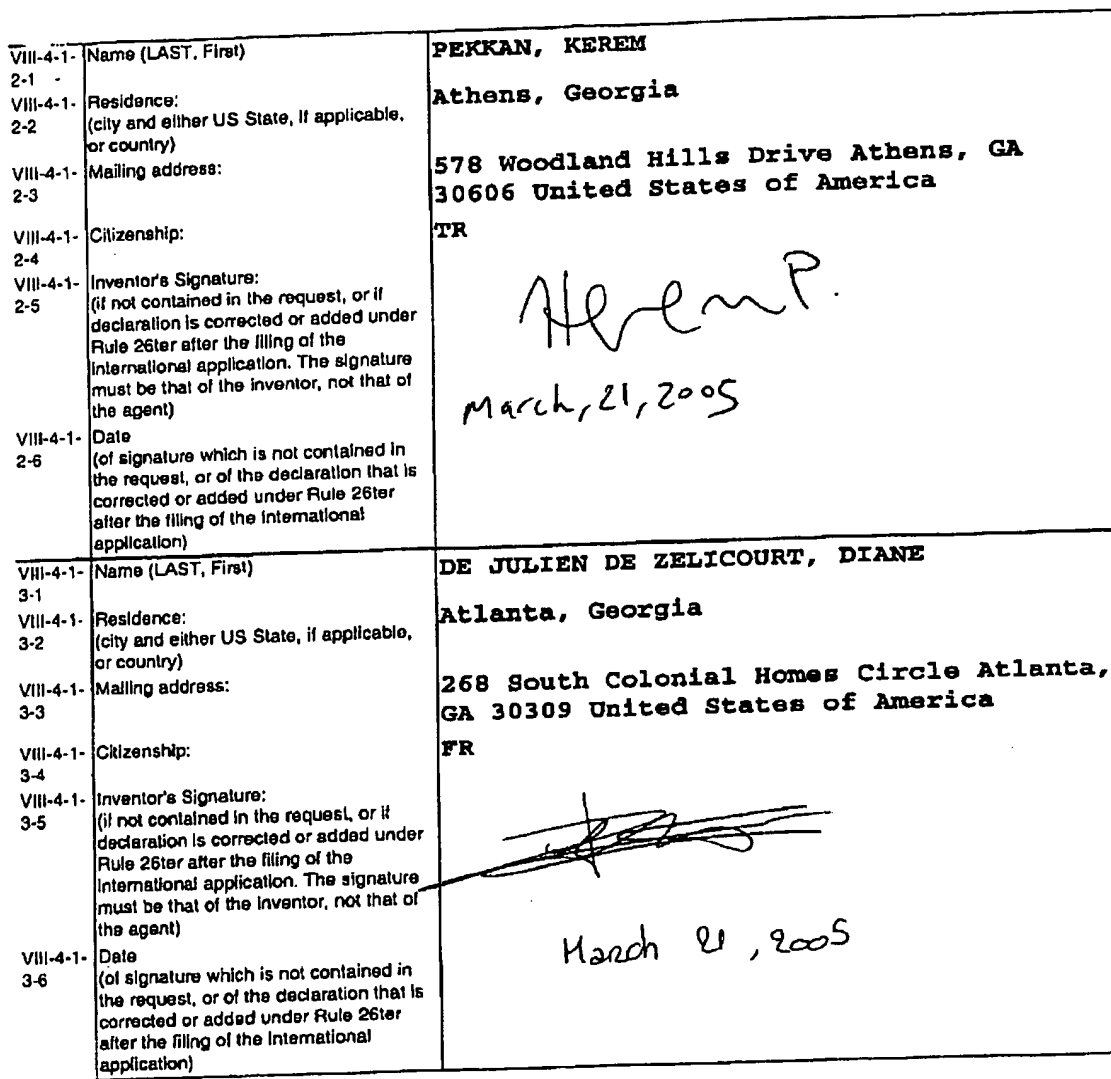 VIII-4-1-2-1 - Name (LAST, First) PEKKAN, KEREM
VIII-4-1-2-2 Residence: Athens, Georgia
(city and either US State, if applicable,
or country)
VIII-4-1-2-3 Mailing address: 578 Woodland Hills Drive Athens, GA
30606 United States of America
VIII-4-1-2-4 Citizenship: TR
VIII-4-1-2-5 Inventor's Signature:
(if not contained in the request, or if
declaration is corrected or added under
Rule 26ter after the filing of the
international application. The signature
must be that of the inventor, not that of
the agent)
Kerem P.
March, 21, 2005
VIII-4-1-2-6 Date
(of signature which is not contained in
the request, or of the declaration that is
corrected or added under Rule 26ter
after the filing of the international
application)
VIII-4-1-3-1 Name (LAST, First) DE JULIEN DE ZELICOURT, DIANE
VIII-4-1-3-2 Residence: Atlanta, Georgia
(city and either US State, if applicable,
or country)
VIII-4-1-3-3 Mailing address: 268 South Colonial Homes Circle Atlanta,
GA 30309 United States of America
VIII-4-1-3-4 Citizenship: FR
VIII-4-1-3-5 Inventor's Signature:
(if not contained in the request, or if
declaration is corrected or added under
Rule 26ter after the filing of the
international application. The signature
must be that of the inventor, not that of
the agent)
March 21, 2005
VIII-4-1-3-6 Date
(of signature which is not contained in
the request, or of the declaration that is
corrected or added under Rule 26ter
after the filing of the international
application)